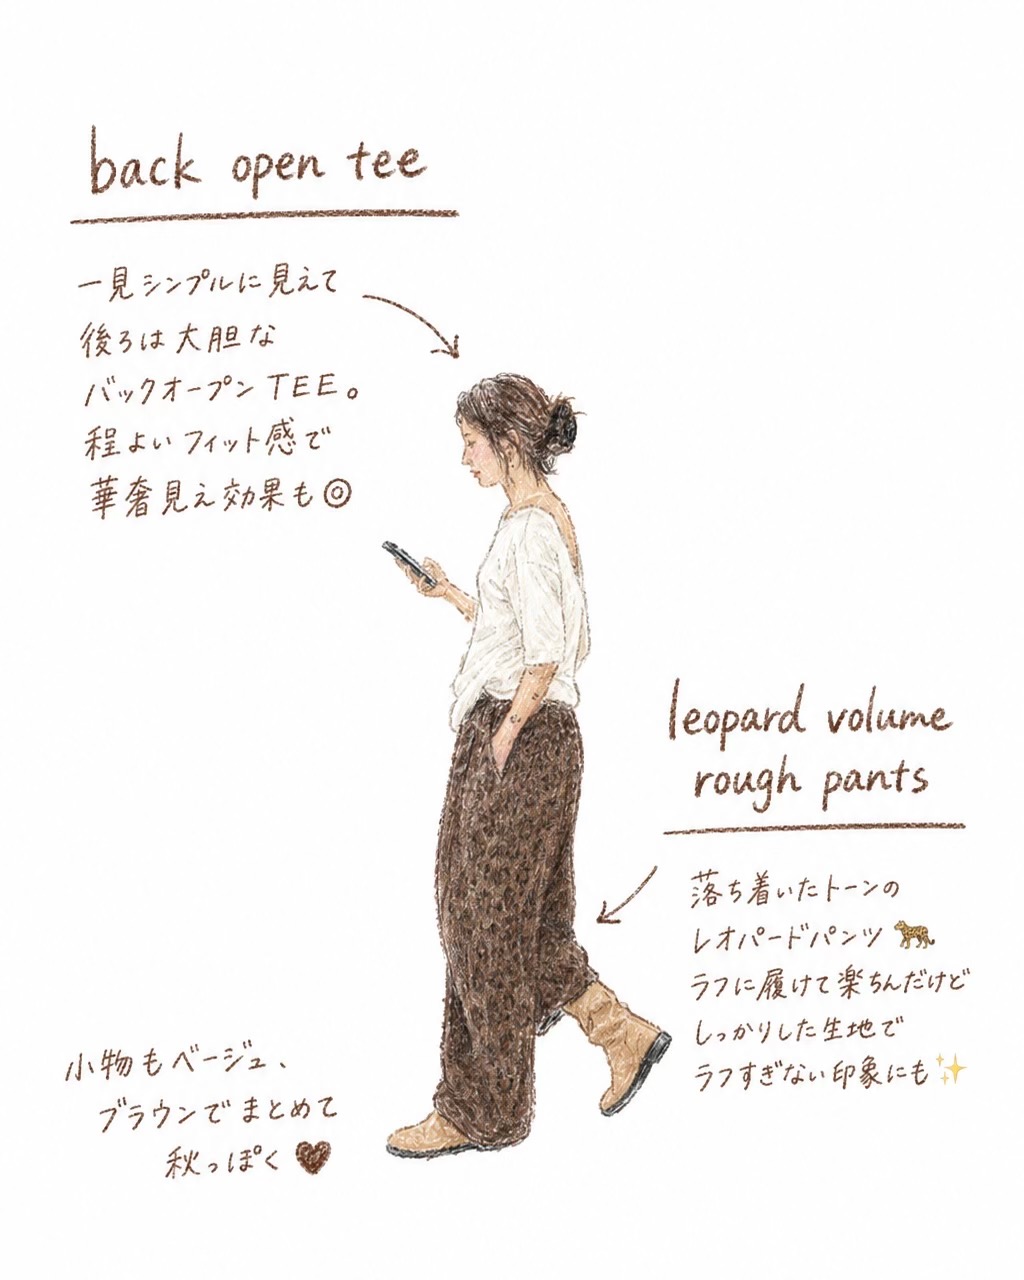 back open tee
一見シンプルに見えて
後ろは大胆な
バックオープンTEE。
程よいフィット感で
華奢見え効果も◎
leopard volume
rough pants
落ち着いたトーンの
レオパードパンツ🐆
ラフに履けて楽ちんだけど
しっかりした生地で
ラフすぎない印象にも✨
小物もベージュ、
ブラウンでまとめて
秋っぽく🤎